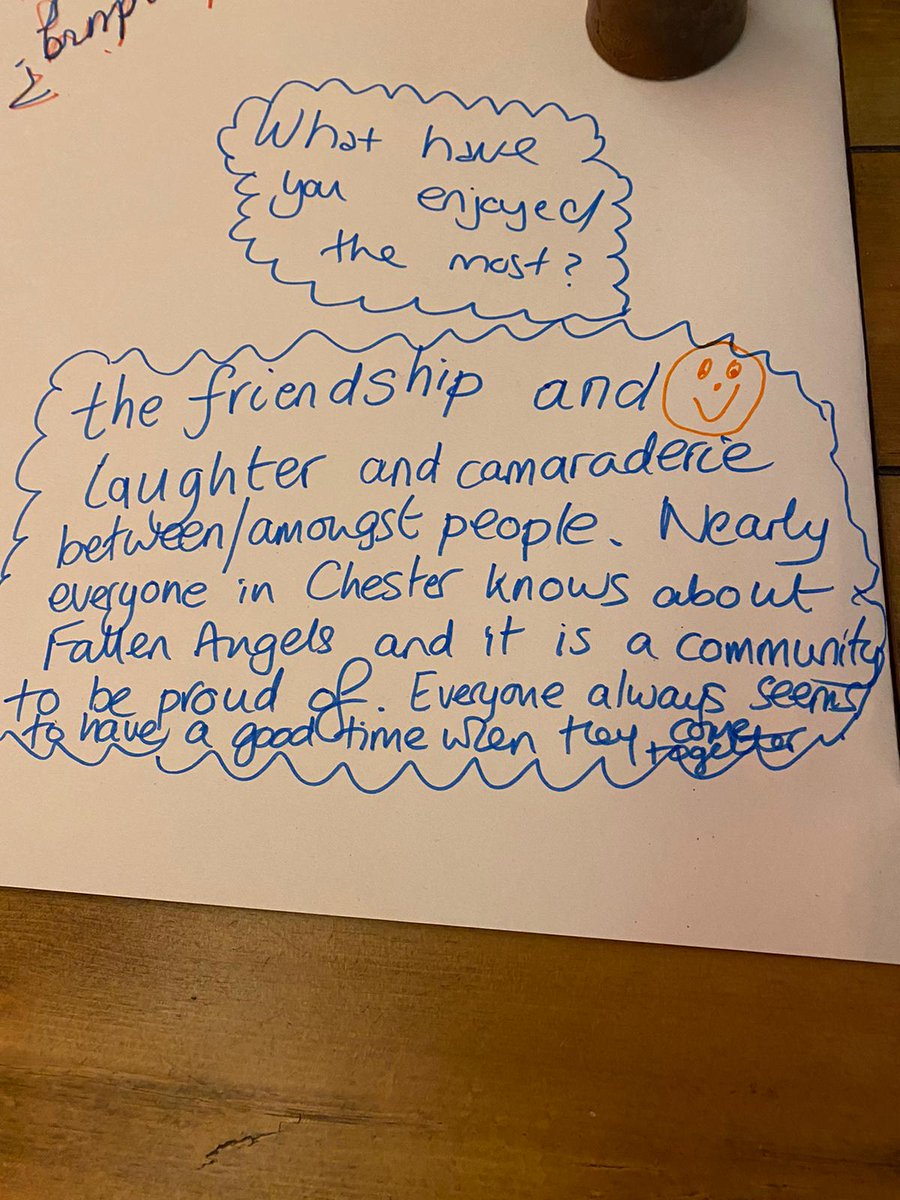 What have
you enjoyed
the most?
the friendship and
laughter and camaraderie
between/amongst people. Nearly
everyone in Chester knows about
Fallen Angels and it is a community
to be proud of. Everyone always seems
to have a good time when they come
together